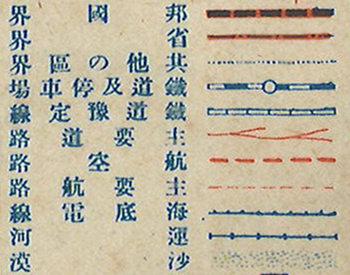 邦國界
省界
其他の區界
鐵道及停車場
鐵道豫定線
主要道路
航空路
主要航路
海底電線
運河
沙漠